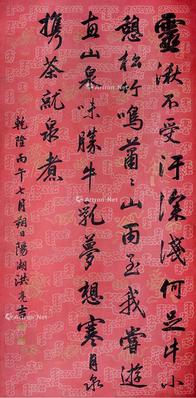 靈湫不受汙深淺何足牛小
憩松竹鳴蕭蕭山雨至我嘗遊
直山泉味勝牛乳夢想寒月泉
携茶就泉煮
乾隆丙午七月朔日陽湖洪亮吉
Artron.Net